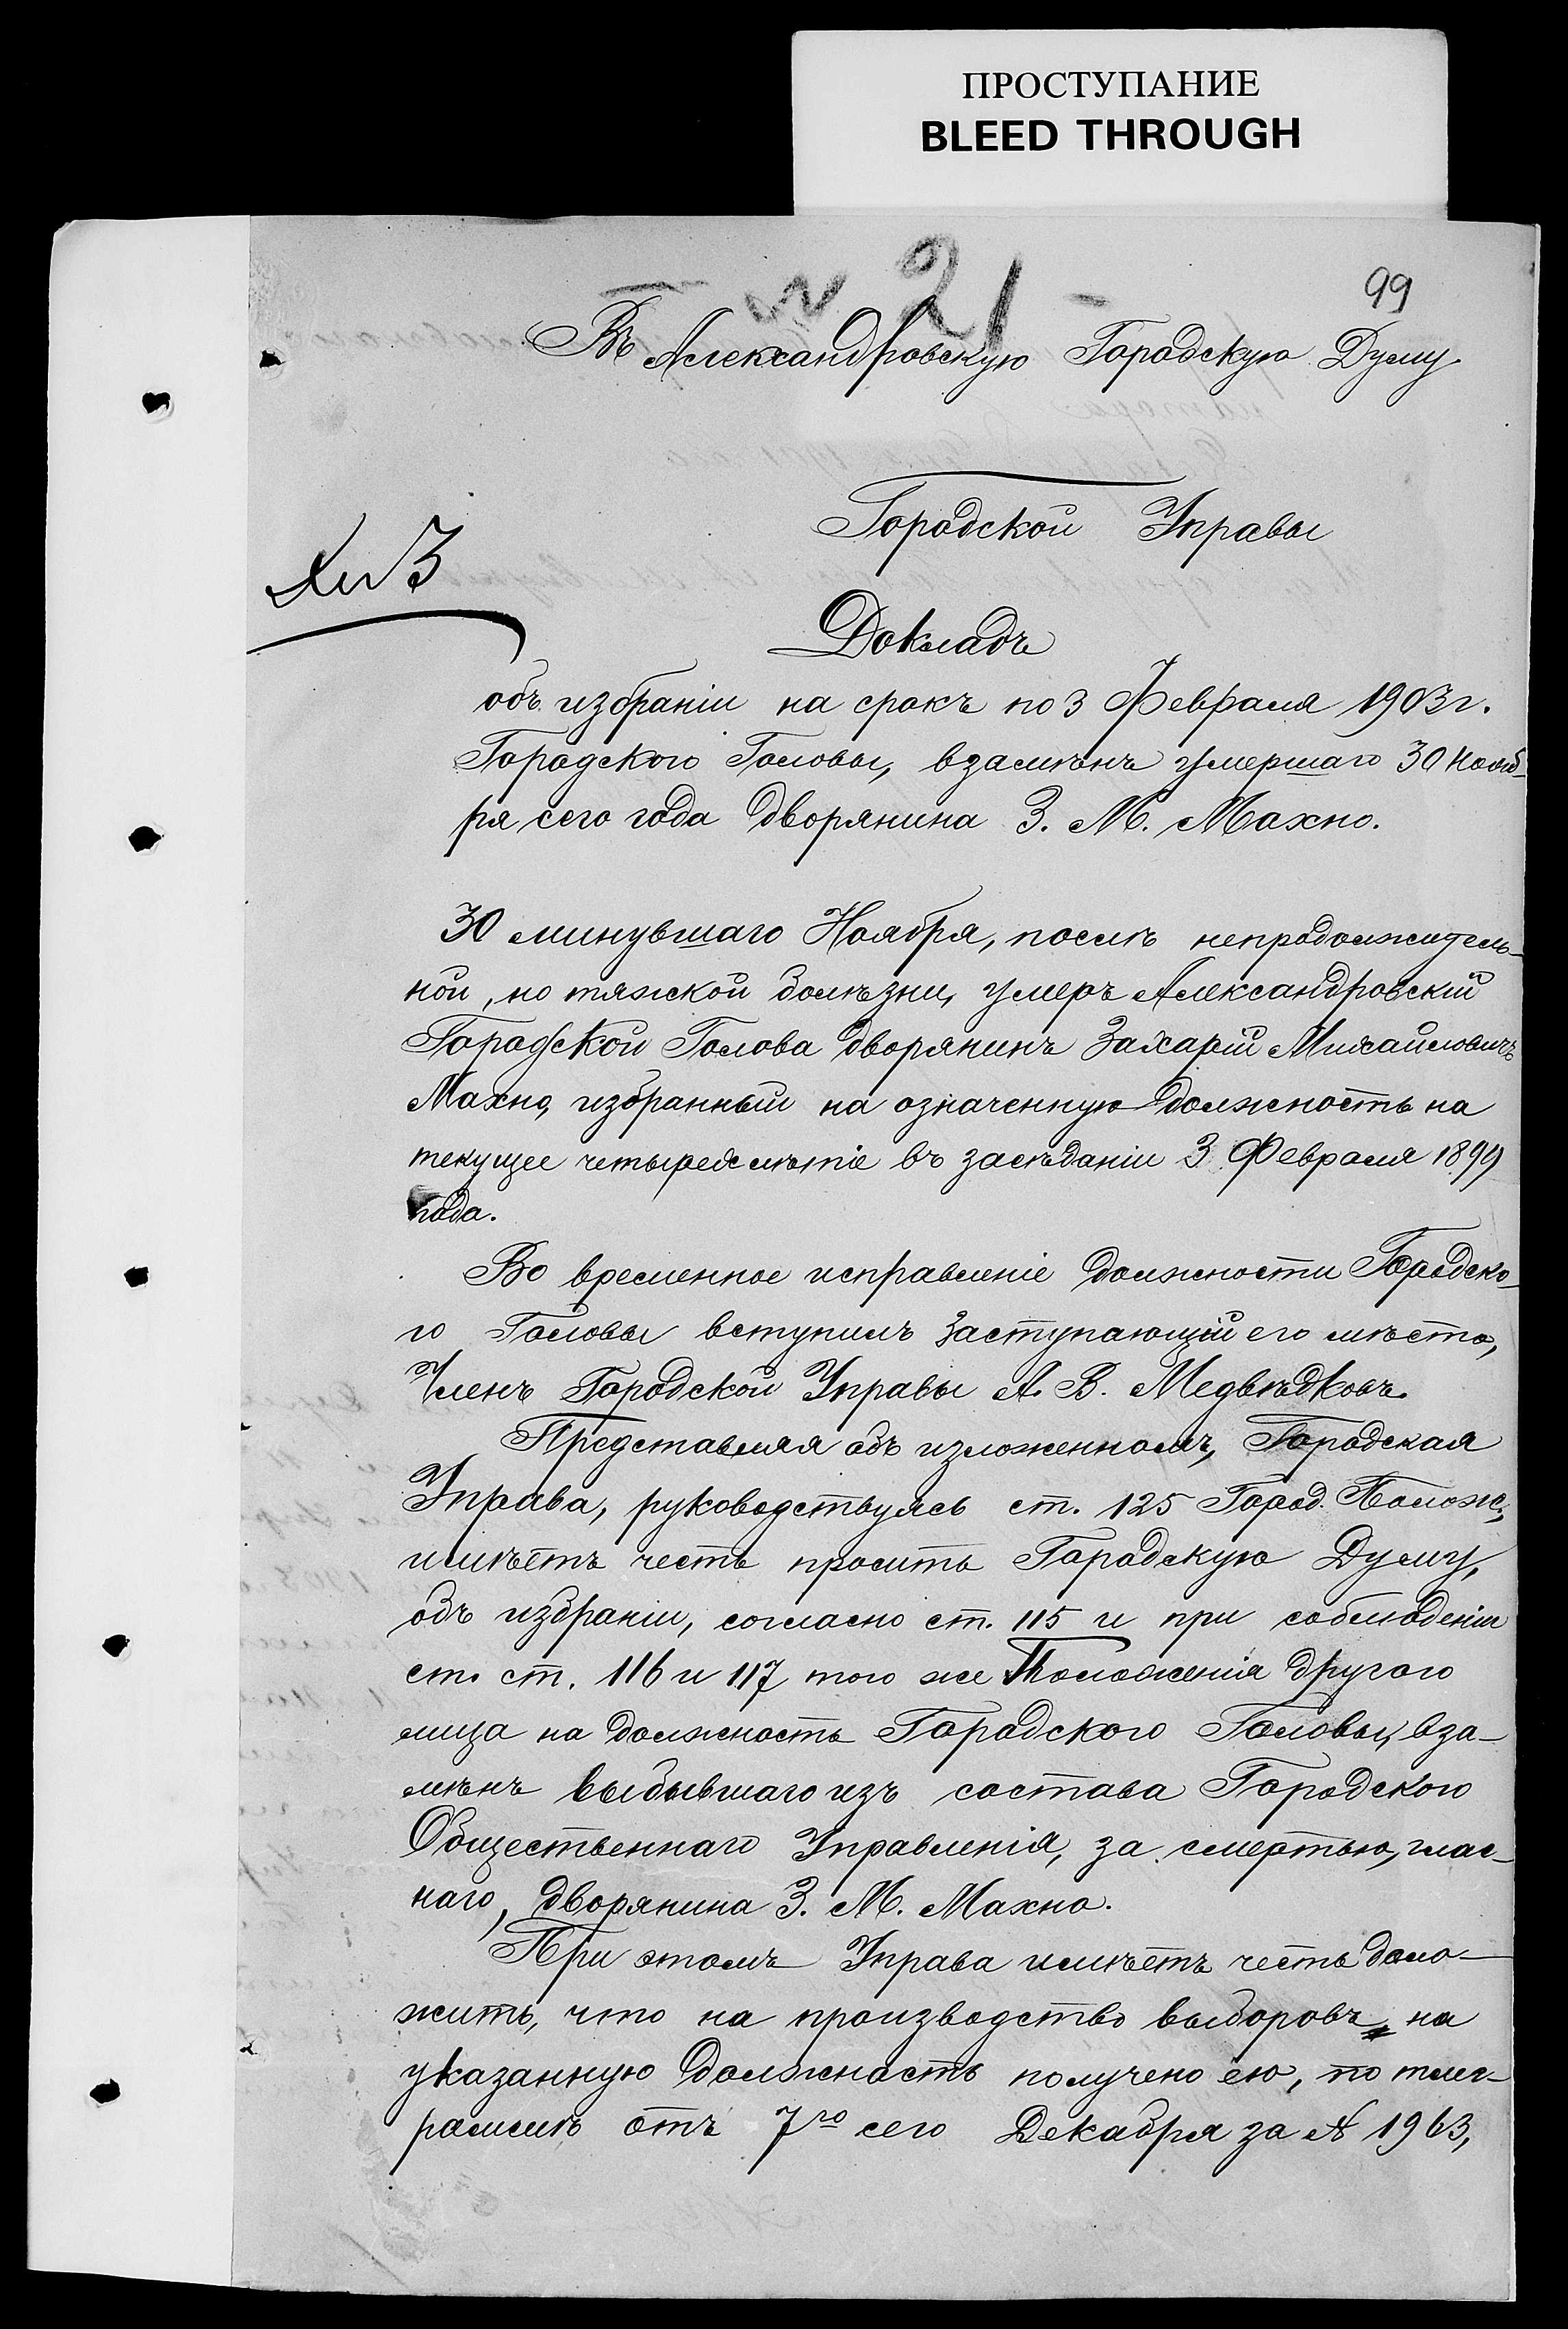 ПРОСТУПАНИЕ
BLEED THROUGH
№ 21
99
Въ Александровскую Городскую Думу
Городской Управы
№ 3
Докладъ
объ избраніи на срокъ по 3 Февраля 1903 г.
Городского Головы, взамѣнъ умершаго 30 Нояб-
ря сего года дворянина З. М. Махно.
30 минувшаго Ноября, послѣ непродолжитель-
ной, но тяжкой болѣзни, умеръ Александровскій
Городской Голова дворянинъ Захарій Михайловичъ
Махно, избранный на означенную должность на
текущее четырехлѣтіе въ засѣданіи 3 Февраля 1899
года.
Во временное исправленіе должности Городско-
го Головы вступилъ заступающій его мѣсто,
Членъ Городской Управы А. В. Медвѣдковъ.
Представляя объ изложенномъ, Городская
Управа, руководствуясь ст. 125 Город. Полож.,
имѣетъ честь просить Городскую Думу,
объ избраніи, согласно ст. 115 и при соблюденіи
ст. ст. 116 и 117 того же Положенія другого
лица на должность Городского Головы, вза-
мѣнъ выбывшаго изъ состава Городского
Общественнаго Управленія, за смертью, глас-
наго, дворянина З. М. Махно.
При этомъ Управа имѣетъ честь доло-
жить, что на производство выборовъ на
указанную должность получено ею, по телег-
раммѣ отъ 7го сего Декабря за № 1963,